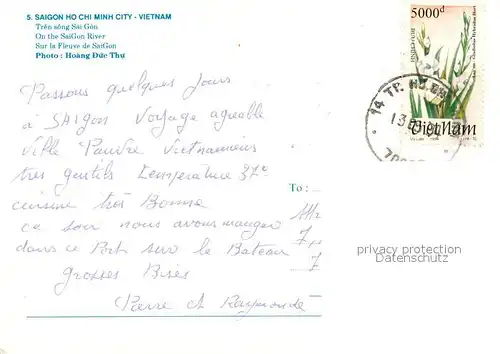 5. SAIGON HO CHI MINH CITY - VIETNAM
Trên sông Sài Gòn
On the SaiGon River
Sur la Fleuve de SaiGon
Photo : Hoàng Đức Thụ
Passons quelques jours
à SAIgon Voyage agreable
Ville Pauvre Vietnamiens
très gentils température 37°
cuisine très Bonne
ce soir nous avons manger
dans ce Port sur le Bateau
grosses Bises
Pierre et Raymonde
To :
5000đ
BƯU CHÍNH
ViệtNam
14 TP. H
13
70
privacy protection
Datenschutz